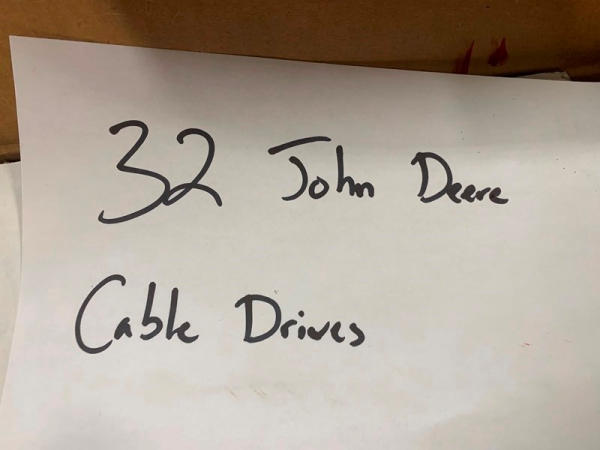 32 John Deere
Cable Drives